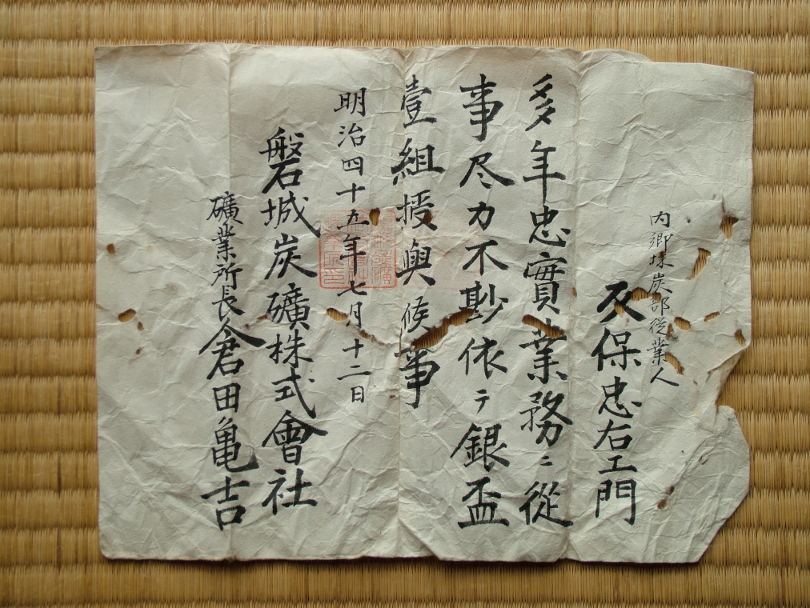 内郷採炭部従業人
久保忠右エ門
多年忠實業務ニ從
事尽力不尠依テ銀盃
壹組授與候事
明治四十五年七月十二日
磐城炭礦株式會社
礦業所長倉田亀吉